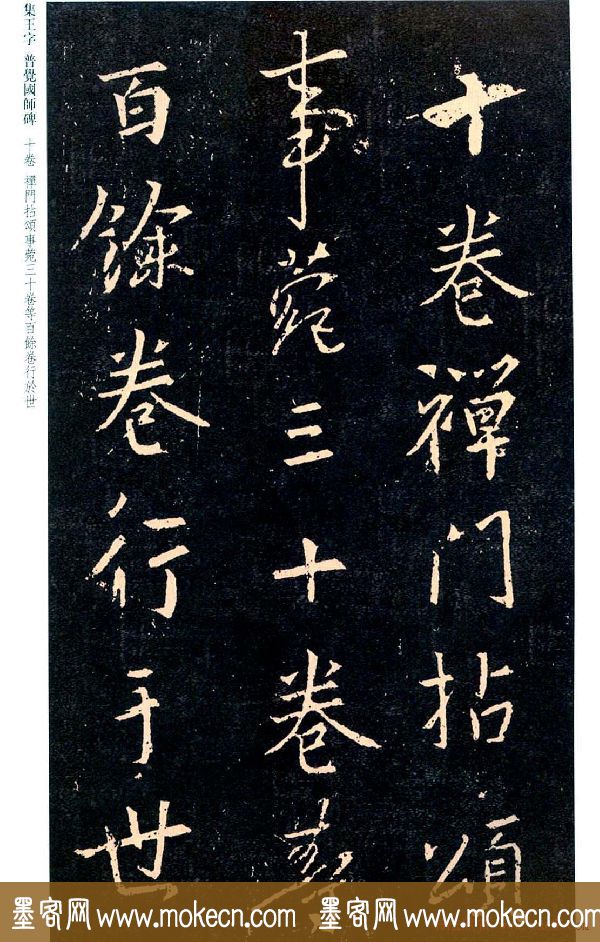 十卷禪門拈頌
事菀三十卷等
百餘卷行于世
集王字 普覺國師碑 十卷 禪門拈頌事菀三十卷等百餘卷行於世
墨客网 www.mokecn.com 墨客网 www.mokecn.com